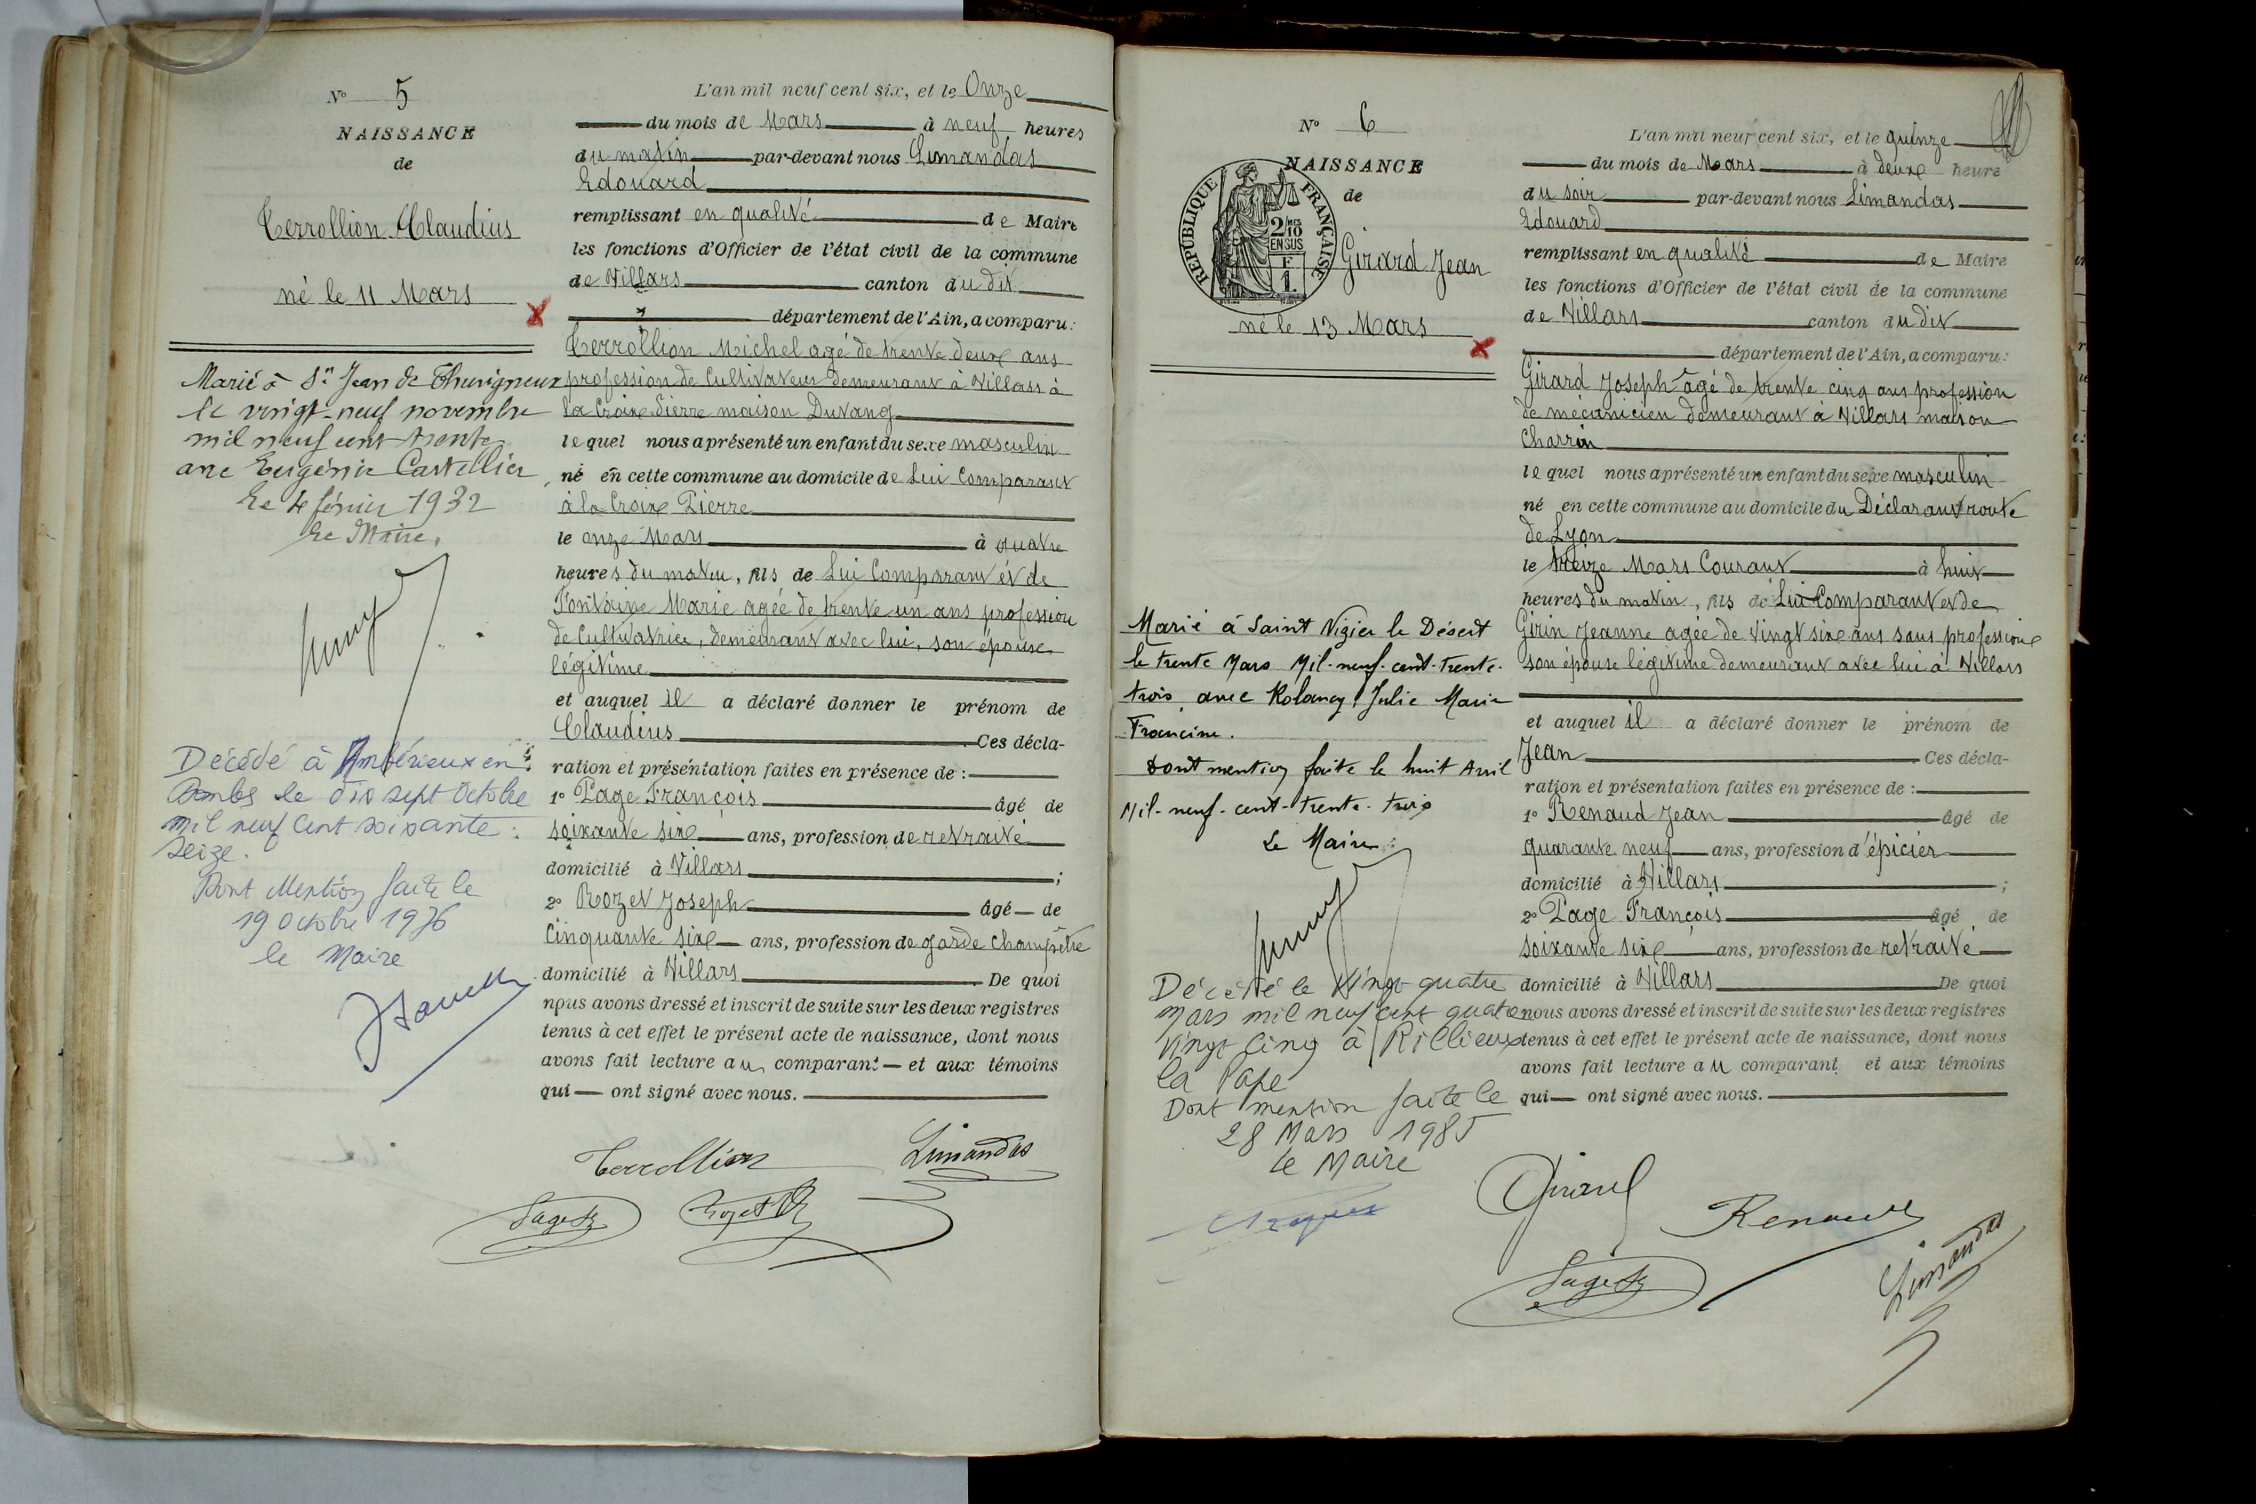 N° 5
NAISSANCE
de
Terrollion Claudius
né le 11 Mars
Marié à St Jean de Thurigneux
le vingt-neuf novembre
mil neuf cent trente
avec Eugénie Castellier
Le 4 février 1932
Le Maire,
Décédé à Ambérieux en
Dombes le dix sept Octobre
mil neuf Cent soixante
seize.
Dont Mention faite le
19 octobre 1976
le Maire
L'an mil neuf cent six, et le Onze
du mois de Mars à neuf heures
du matin par-devant nous Limandas
Edouard
remplissant en qualité de Maire
les fonctions d'Officier de l'état civil de la commune
de Villars canton du dit
département de l'Ain, a comparu :
Terrollion Michel agé de trente deux ans
profession de Cultivateur demeurant à Villars à
la Croix Pierre maison Duvang
lequel nous a présenté un enfant du sexe masculin
né en cette commune au domicile de Lui Comparant
à la Croix Pierre
le onze Mars à quatre
heures du matin, fils de Lui Comparant et de
Fontaine Marie agée de trente un ans profession
de Cultivatrice, demeurant avec lui, son épouse
légitime
et auquel il a déclaré donner le prénom de
Claudius Ces décla-
ration et présentation faites en présence de :
1° Page François âgé de
soixante six ans, profession de retraité
domicilié à Villars ;
2° Rozet Joseph âgé de
Cinquante six ans, profession de garde champêtre
domicilié à Villars De quoi
nous avons dressé et inscrit de suite sur les deux registres
tenus à cet effet le présent acte de naissance, dont nous
avons fait lecture au comparant et aux témoins
qui ont signé avec nous.
Terrollion Limandas
Page Rozet
N° 6
NAISSANCE
de
RÉPUBLIQUE FRANÇAISE
2/10 EN SUS
F 1
Girard Jean
né le 13 Mars
Marié à Saint Nizier le Désert
le trente Mars Mil-neuf-cent-trente-
trois, avec Rolancy Julie Marie
Francine.
Dont mention faite le huit Avril
Mil-neuf-cent-trente-trois
Le Maire :
Décédé le Vingt quatre
Mars mil neuf cent quatre
Vingt Cinq à Rillieux
la Pape
Dont mention faite le
28 Mars 1985
Le Maire
L'an mil neuf cent six, et le quinze
du mois de Mars à deux heure
du soir par-devant nous Limandas
Edouard
remplissant en qualité de Maire
les fonctions d'Officier de l'état civil de la commune
de Villars canton du dit
département de l'Ain, a comparu :
Girard Joseph âgé de trente cinq ans profession
de mécanicien demeurant à Villars maison
Charrin
lequel nous a présenté un enfant du sexe masculin
né en cette commune au domicile du Déclarant route
de Lyon
le treize Mars Courant à huit
heures du matin, fils de Lui Comparant et de
Girin Jeanne agée de vingt six ans sans profession
son épouse légitime demeurant avec lui à Villars
et auquel il a déclaré donner le prénom de
Jean Ces décla-
ration et présentation faites en présence de :
1° Renaud Jean âgé de
quarante neuf ans, profession d'épicier
domicilié à Villars ;
2° Page François âgé de
soixante six ans, profession de retraité
domicilié à Villars De quoi
nous avons dressé et inscrit de suite sur les deux registres
tenus à cet effet le présent acte de naissance, dont nous
avons fait lecture au comparant et aux témoins
qui ont signé avec nous.
Girard Renaud
Page Limandas